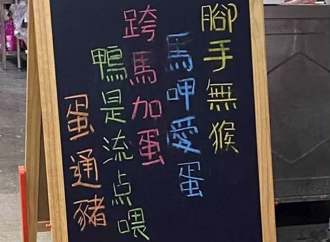 腳手無猴
馬呷愛蛋
跨馬加蛋
鴨是流点喂
蛋通豬